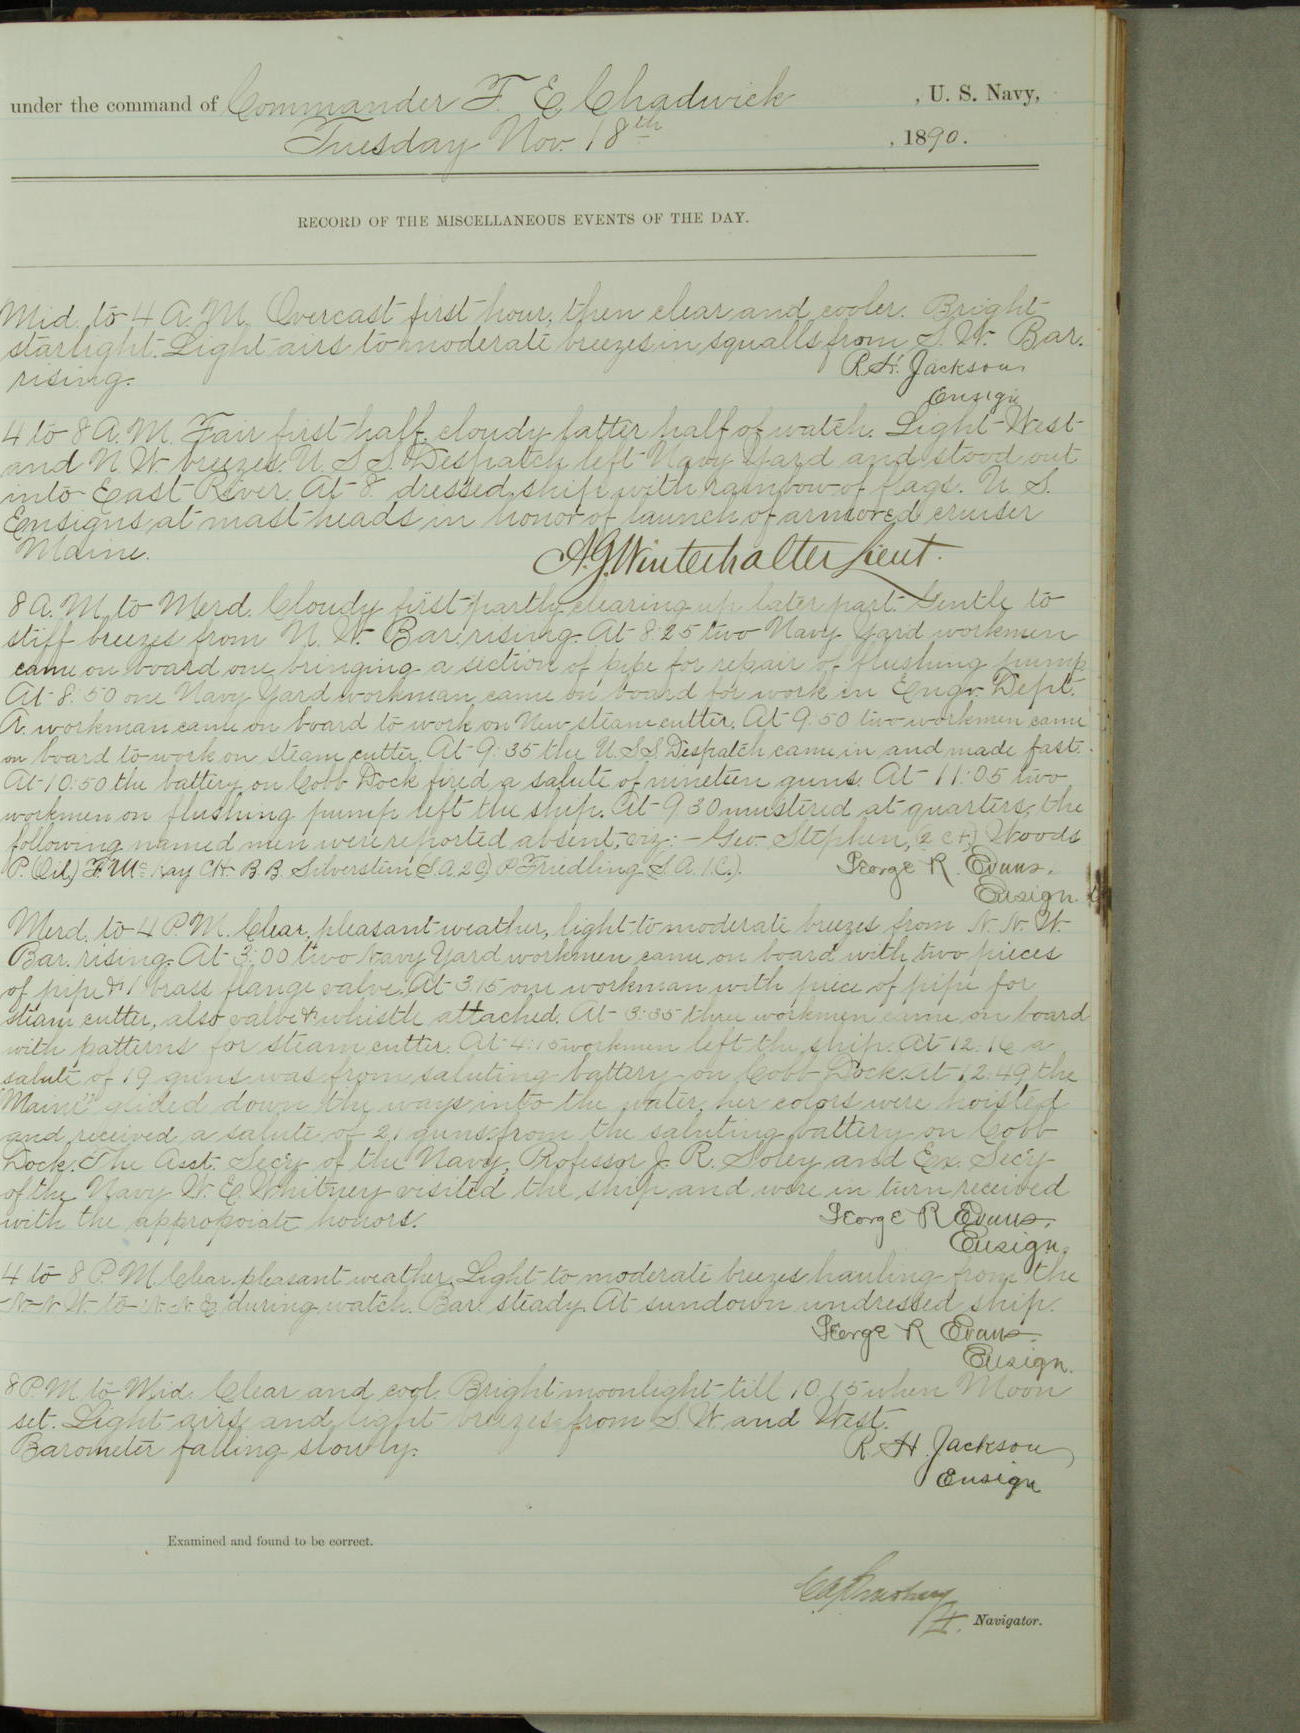 under the command of Commander F. E. Chadwick , U. S. Navy,
Tuesday Nov. 18th , 1890.
RECORD OF THE MISCELLANEOUS EVENTS OF THE DAY.
Mid. to 4 A.M. Overcast first hour, then clear and cooler. Bright
starlight. Light airs to moderate breezes in squalls from S.W. Bar.
rising.
R. H. Jackson
Ensign
4 to 8 A.M. Fair first half, cloudy latter half of watch. Light West
and N W breezes. U.S.S. Despatch left Navy Yard and stood out
into East River. At 8 dressed ship with rainbow of flags. U. S.
Ensigns at mast heads in honor of launch of armored cruiser
Maine.
A.G. Winterhalter Lieut.
8 A.M. to Merd. Cloudy first part, clearing up later part. Gentle to
stiff breezes from N. W. Bar. rising. At 8:25 two Navy Yard workmen
came on board one bringing a section of pipe for repair of flushing pump
At 8:50 one Navy Yard workman came on board for work in Engr. Dept.
A workman came on board to work on New steam cutter. At 9:50 two workmen came
on board to work on steam cutter. At 9:35 the U.S.S. Despatch came in and made fast.
At 10:50 the battery on Cobb Dock fired a salute of nineteen guns. At 11:05 two
workmen on flushing pump left the ship. At 9 30 mustered at quarters, the
following named men were reported absent, viz:- Geo. Stephen, Woods
P. (Oil) F. Mc Kay CH. B. B. Silverstein (S.A.2C) P Friedling (S.A.1C.).
George R. Evans.
Ensign.
Merd. to 4 P.M. Clear, pleasant weather, light to moderate breezes from N. N. W.
Bar. rising. At 3:00 two Navy Yard workmen came on board with two pieces
of pipe & 1 brass flange valve. At 3.15 one workman with piece of pipe for
steam cutter, also valve & whistle attached. At 3:35 three workmen came on board
with patterns for steam cutter. At 4:15 workmen left the ship. At 12.16 a
salute of 19 guns was from saluting battery on Cobb Dock. At 12.49 the
"Maine" glided down the ways into the water, her colors were hoisted
and received a salute of 21 guns from the saluting battery on Cobb
Dock. The Asst. Sec'y of the Navy, Professor J. R. Soley and Ex. Sec'y
of the Navy W. C. Whitney visited the ship and were in turn received
with the appropoiate honors.
George R Evans.
Ensign.
4 to 8 P.M. Clear pleasant weather. Light to moderate breezes hauling from the
N N W to N. N. E. during watch. Bar. steady. At sundown undressed ship.
George R Evans.
Ensign.
8 P.M to Mid. Clear and cool. Bright moonlight till 10.15 when Moon
set. Light airs and light breezes from S. W. and West.
Barometer falling slowly.
R. H. Jackson
Ensign
Examined and found to be correct.
Navigator.